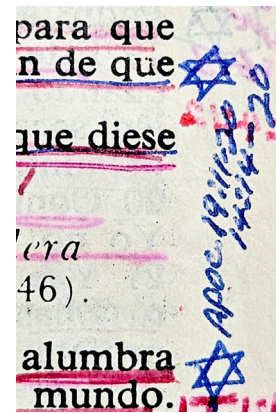 para que
n de que
que diese
lera
46).
alumbra
mundo.
APOC. 19:11-20
14:14-20